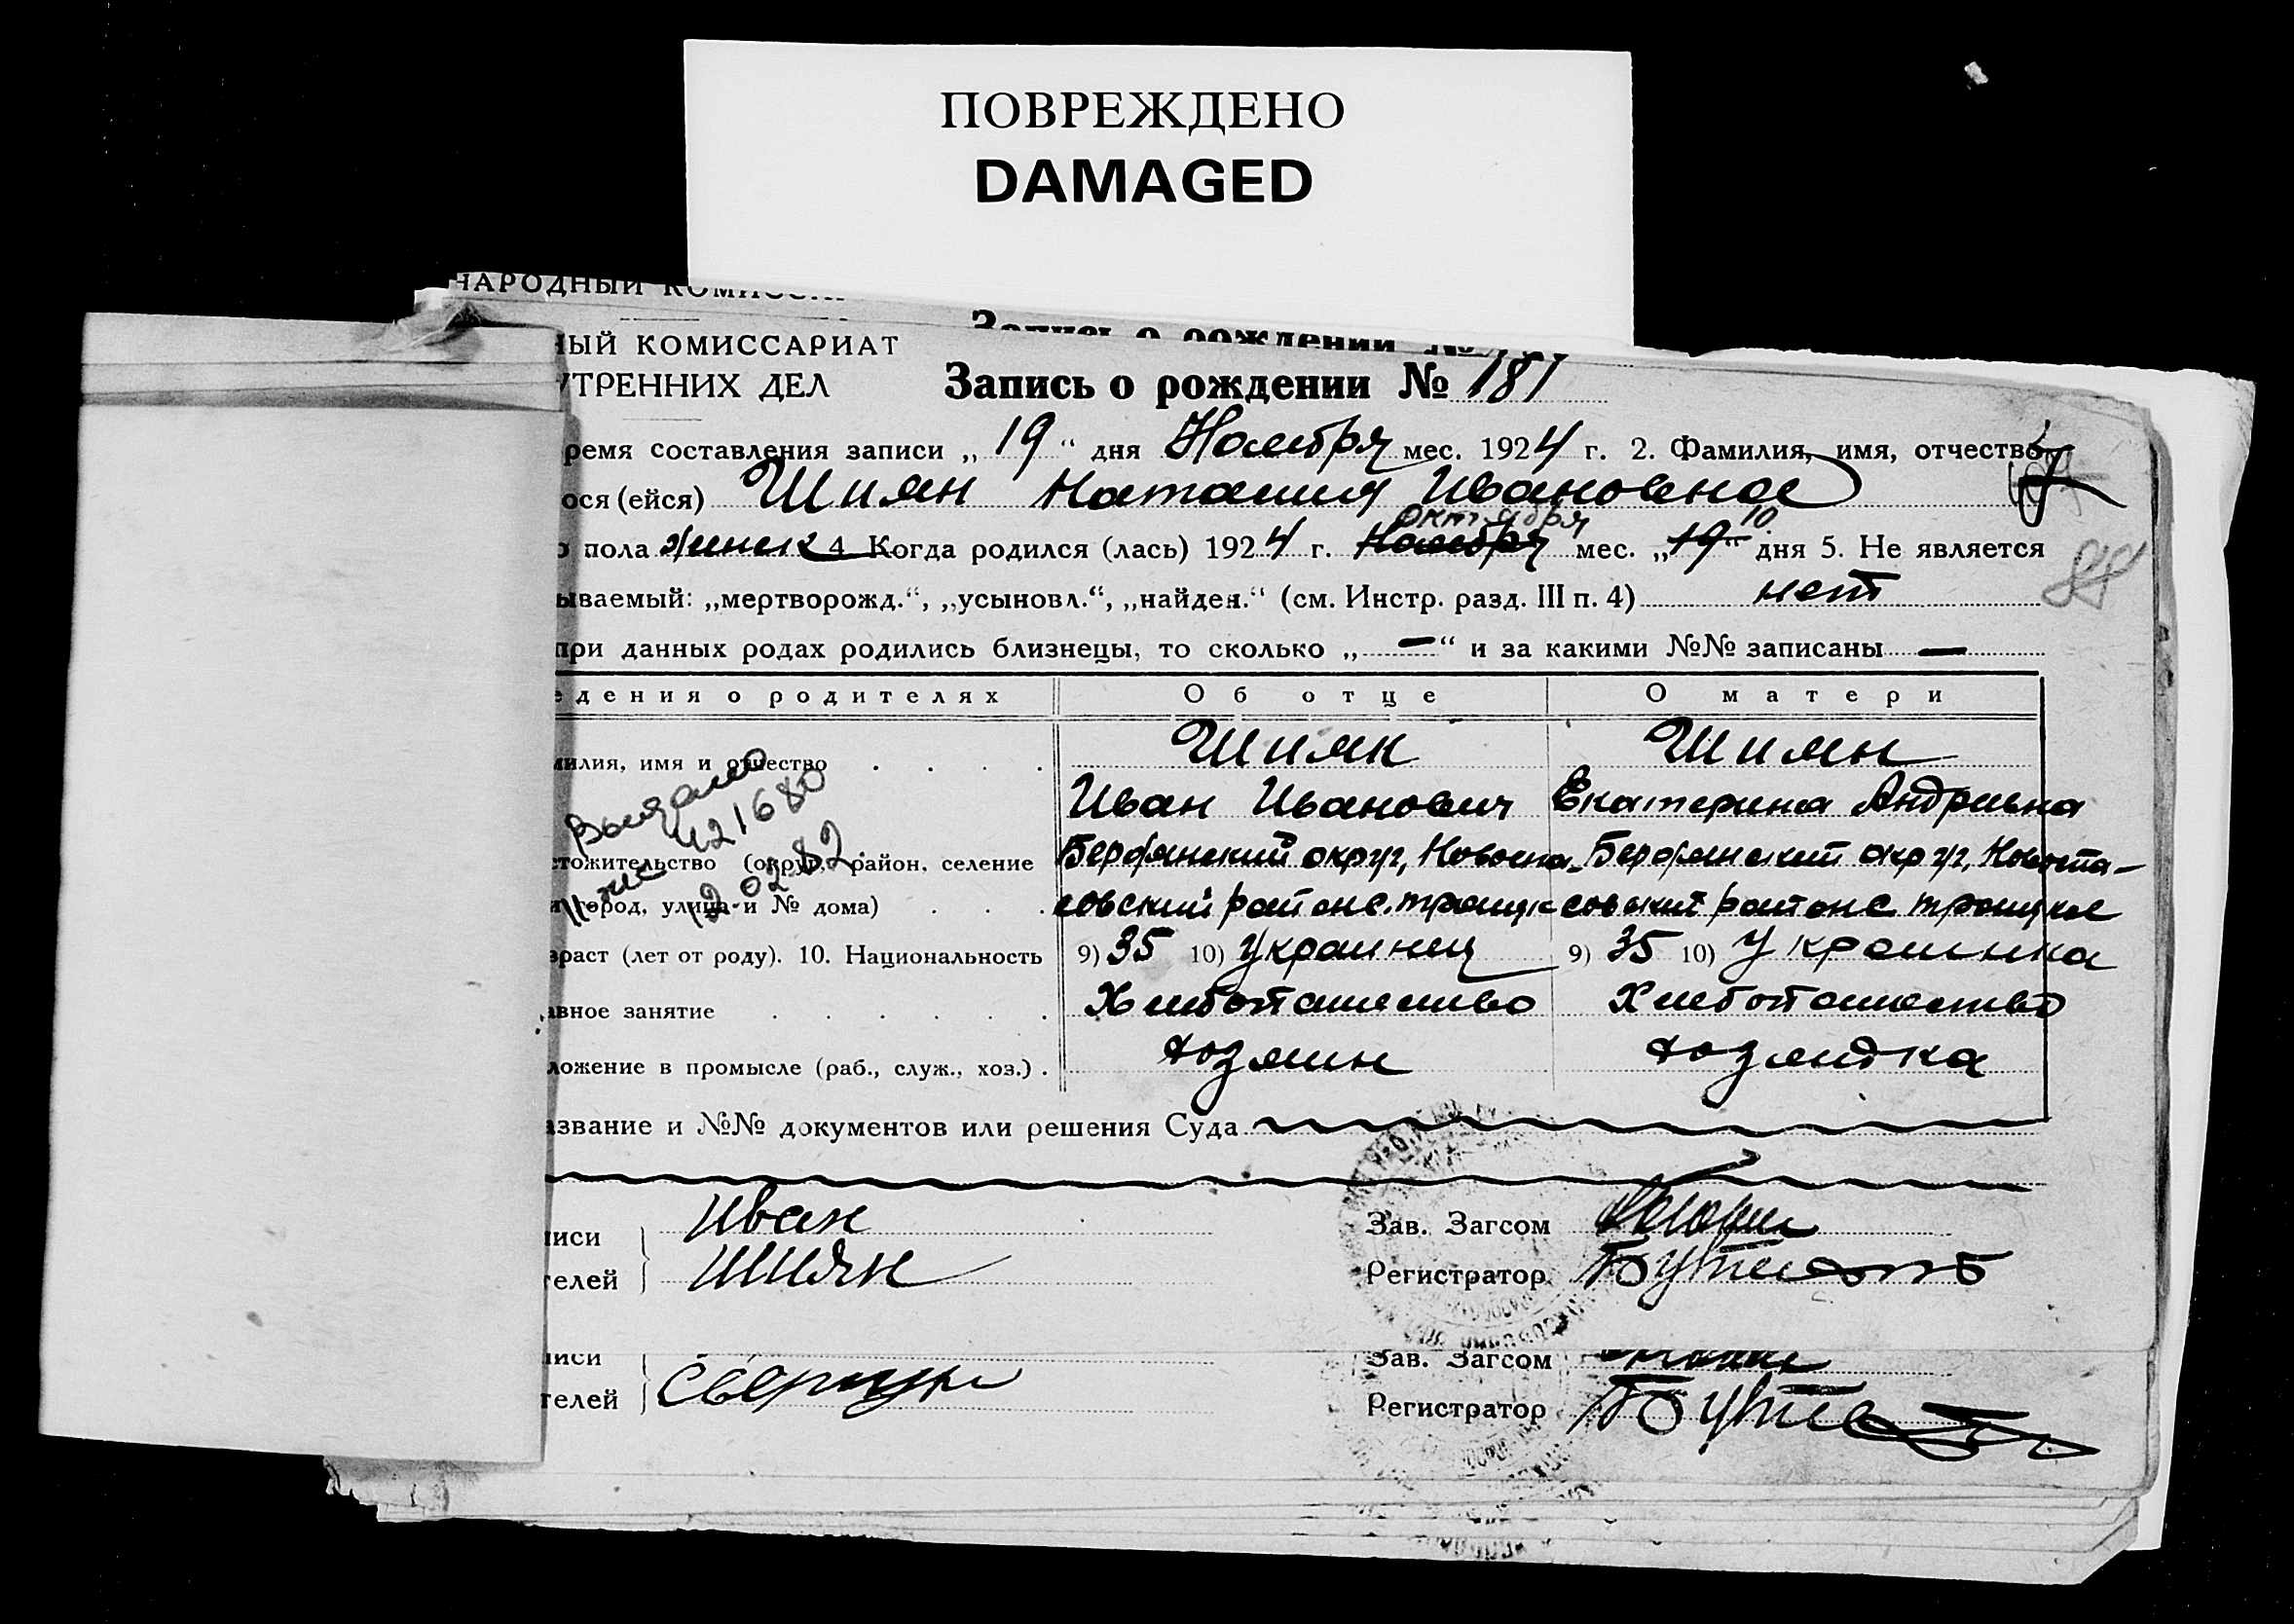 ПОВРЕЖДЕНО
DAMAGED
НАРОДНЫЙ
Запись о рождении №
ный КОМИССАРИАТ
УТРЕННИХ ДЕЛ
Запись о рождении № 181
ремя составления записи „19“ дня Ноября мес. 1924 г. 2. Фамилия, имя, отчество
ося (ейся) Шиян Наталия Ивановна
пола женск 4. Когда родился (лась) 1924 г. Ноября октября мес. „19“ 10 дня 5. Не является
ываемый: „мертворожд.“, „усыновл.“, „найден.“ (см. Инстр. разд. III п. 4) нет
при данных родах родились близнецы, то сколько „—“ и за какими №№ записаны —
едения о родителях Об отце О матери
милия, имя и отчество Шиян Шиян
Иван Иванович Екатерина Андривна
Выдано
421680
12 02 82
стожительство (округ, район, селение Бердянский округ, Новоспа- Бердянский округ, Новоспа-
город, улица и № дома) совский район с. троицк совский район с троицкое
зраст (лет от роду). 10. Национальность 9) 35 10) Украинец 9) 35 10) Украинка
авное занятие Хлебопашество Хлебопашество
ложение в промысле (раб., служ., хоз.) хозяин хозяйка
азвание и №№ документов или решения Суда
Иван
иси Зав. Загсом
телей Шиян Регистратор
иси Зав. Загсом
телей Регистратор